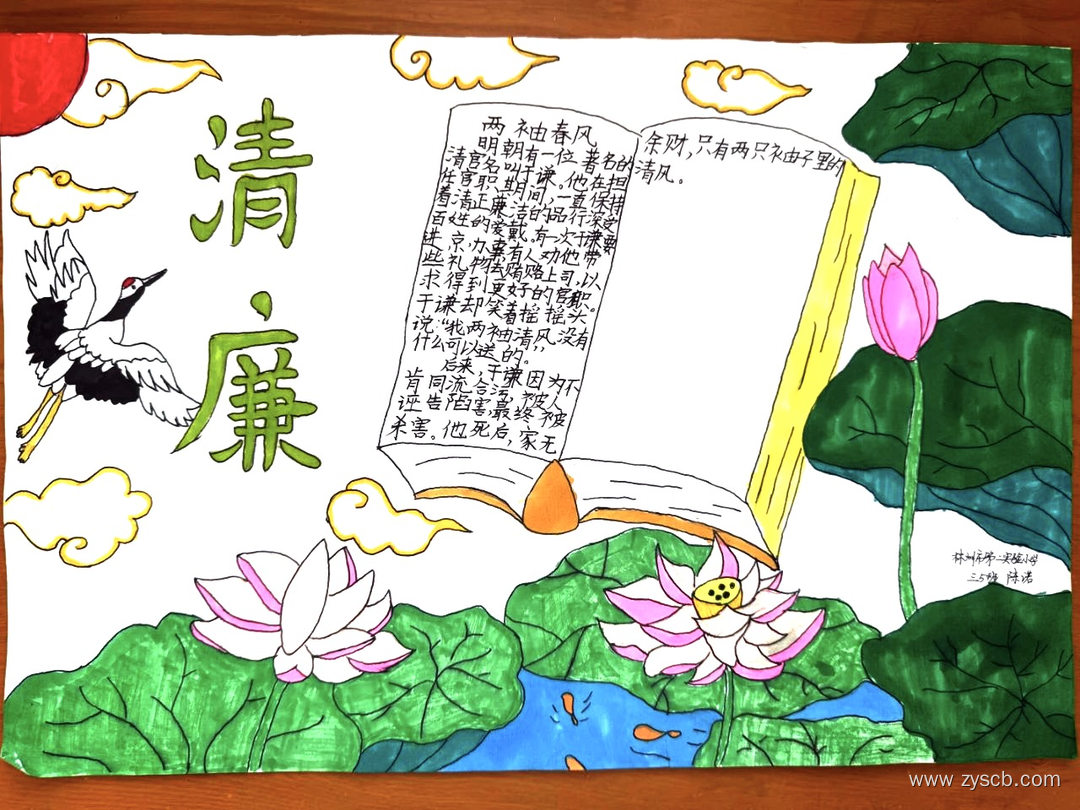 清
廉
两袖春风
明朝有一位著名的
清官名叫于谦。他在担
任官职期间,一直保持
着清正廉洁的品行,深受
百姓的爱戴。有一次于谦要
进京办事,有人劝他带
些礼物去贿赂上司,以
求得到更好的官职。
于谦却笑着摇摇头
说:“我两袖清风,没有
什么可以送的。”
后来,于谦因为不
肯同流合污,被人
诬告陷害,最终被
杀害。他死后,家无
余财,只有两只袖子里的
清风。
林州市第二实验小学
三5班 陈诺
www.zyscb.com